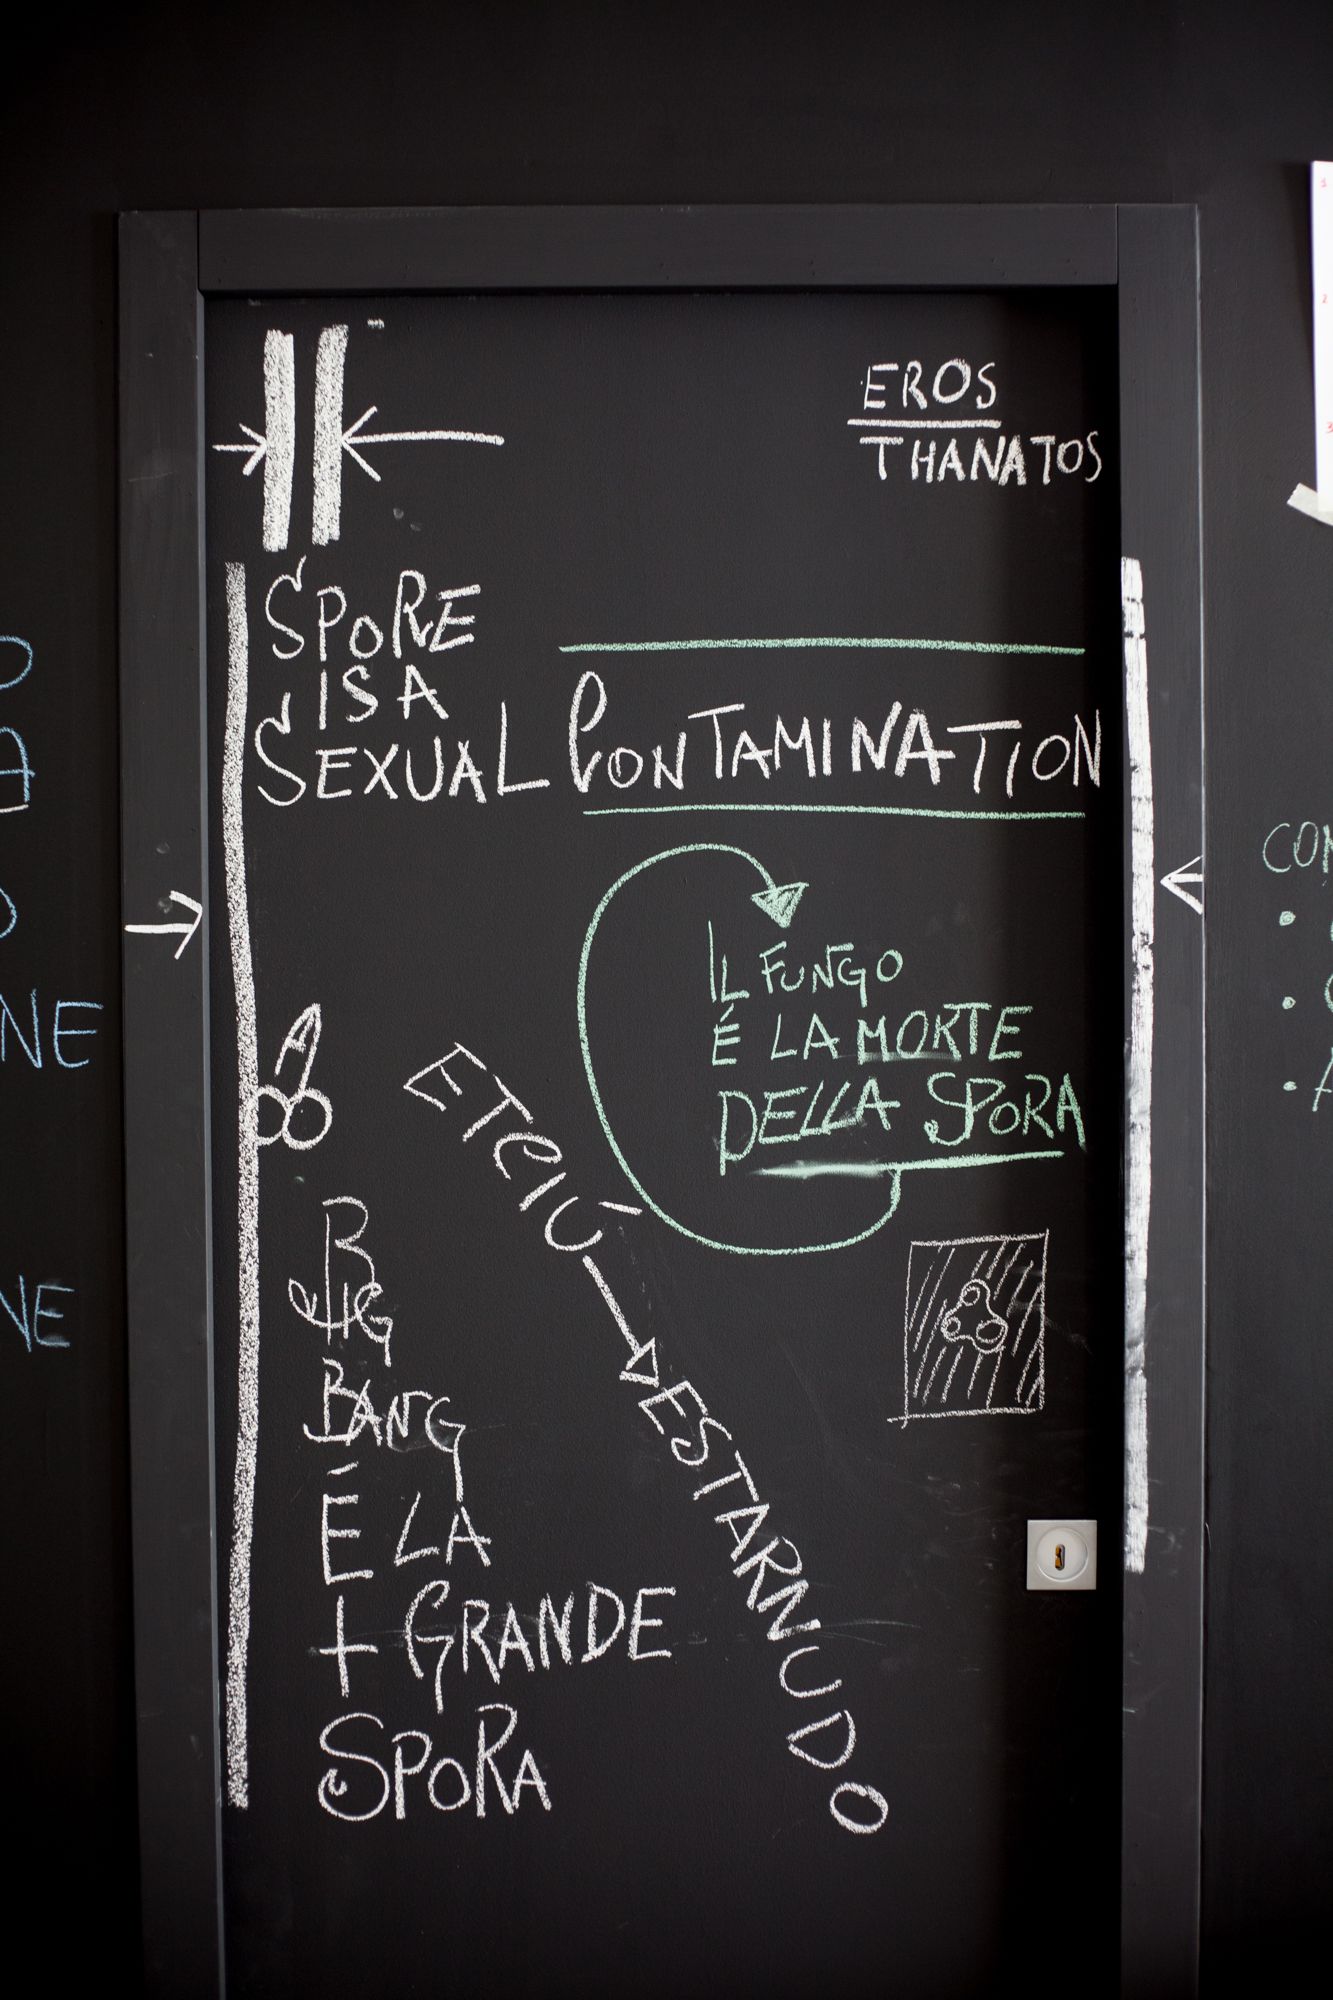 EROS
THANATOS
SPORE
IS A
SEXUAL CONTAMINATION
IL FUNGO
É LA MORTE
DELLA SPORA
ETCIÙ
ESTARNUDO
BIG
BANG
É LA
+ GRANDE
SPORA
NE
NE
CON
1
2
3